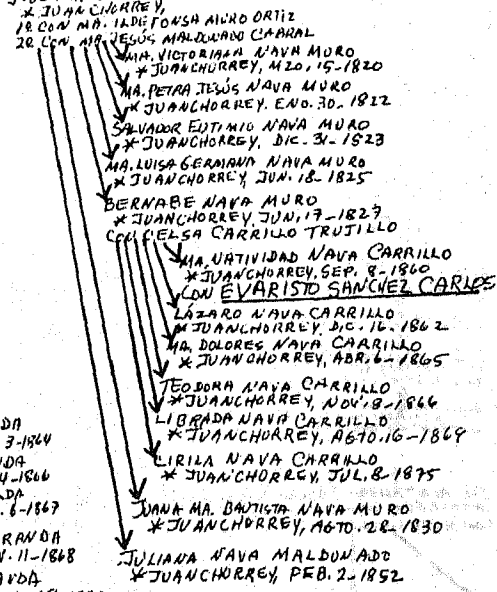 * JUANCHORREY,
1ª CON MA. ILDEFONSA MURO ORTIZ
2ª CON MA. JESÚS MALDONADO CABRAL
MA. VICTORIANA NAVA MURO
* JUANCHORREY, MZO. 15-1820
MA. PETRA JESÚS NAVA MURO
* JUANCHORREY. ENO. 30-1822
SALVADOR EUTIMIO NAVA MURO
* JUANCHORREY, DIC. 31-1823
MA. LUISA GERMANA NAVA MURO
* JUANCHORREY, JUN. 18-1825
BERNABE NAVA MURO
* JUANCHORREY JUN. 17-1827
CON CELSA CARRILLO TRUJILLO
MA. NATIVIDAD NAVA CARRILLO
* JUANCHORREY, SEP. 8-1860
CON EVARISTO SANCHEZ CARLOS
LÁZARO NAVA CARRILLO
* JUANCHORREY, DIC. 16-1862
MA. DOLORES NAVA CARRILLO
* JUANCHORREY, ABR. 6-1865
TEODORA NAVA CARRILLO
* JUANCHORREY, NOV. 8-1866
LIBRADA NAVA CARRILLO
* JUANCHORREY, AGTO. 16-1869
LIRILA NAVA CARRILLO
* JUANCHORREY, JUL. 8-1875
JUANA MA. BAUTISTA NAVA MURO
* JUANCHORREY, AGTO. 28-1830
JULIANA NAVA MALDONADO
* JUANCHORREY, FEB. 2-1852
DA
3-1864
NDA
4-1866
DA
. 6-1867
RANDA
V. 11-1868
ANDA